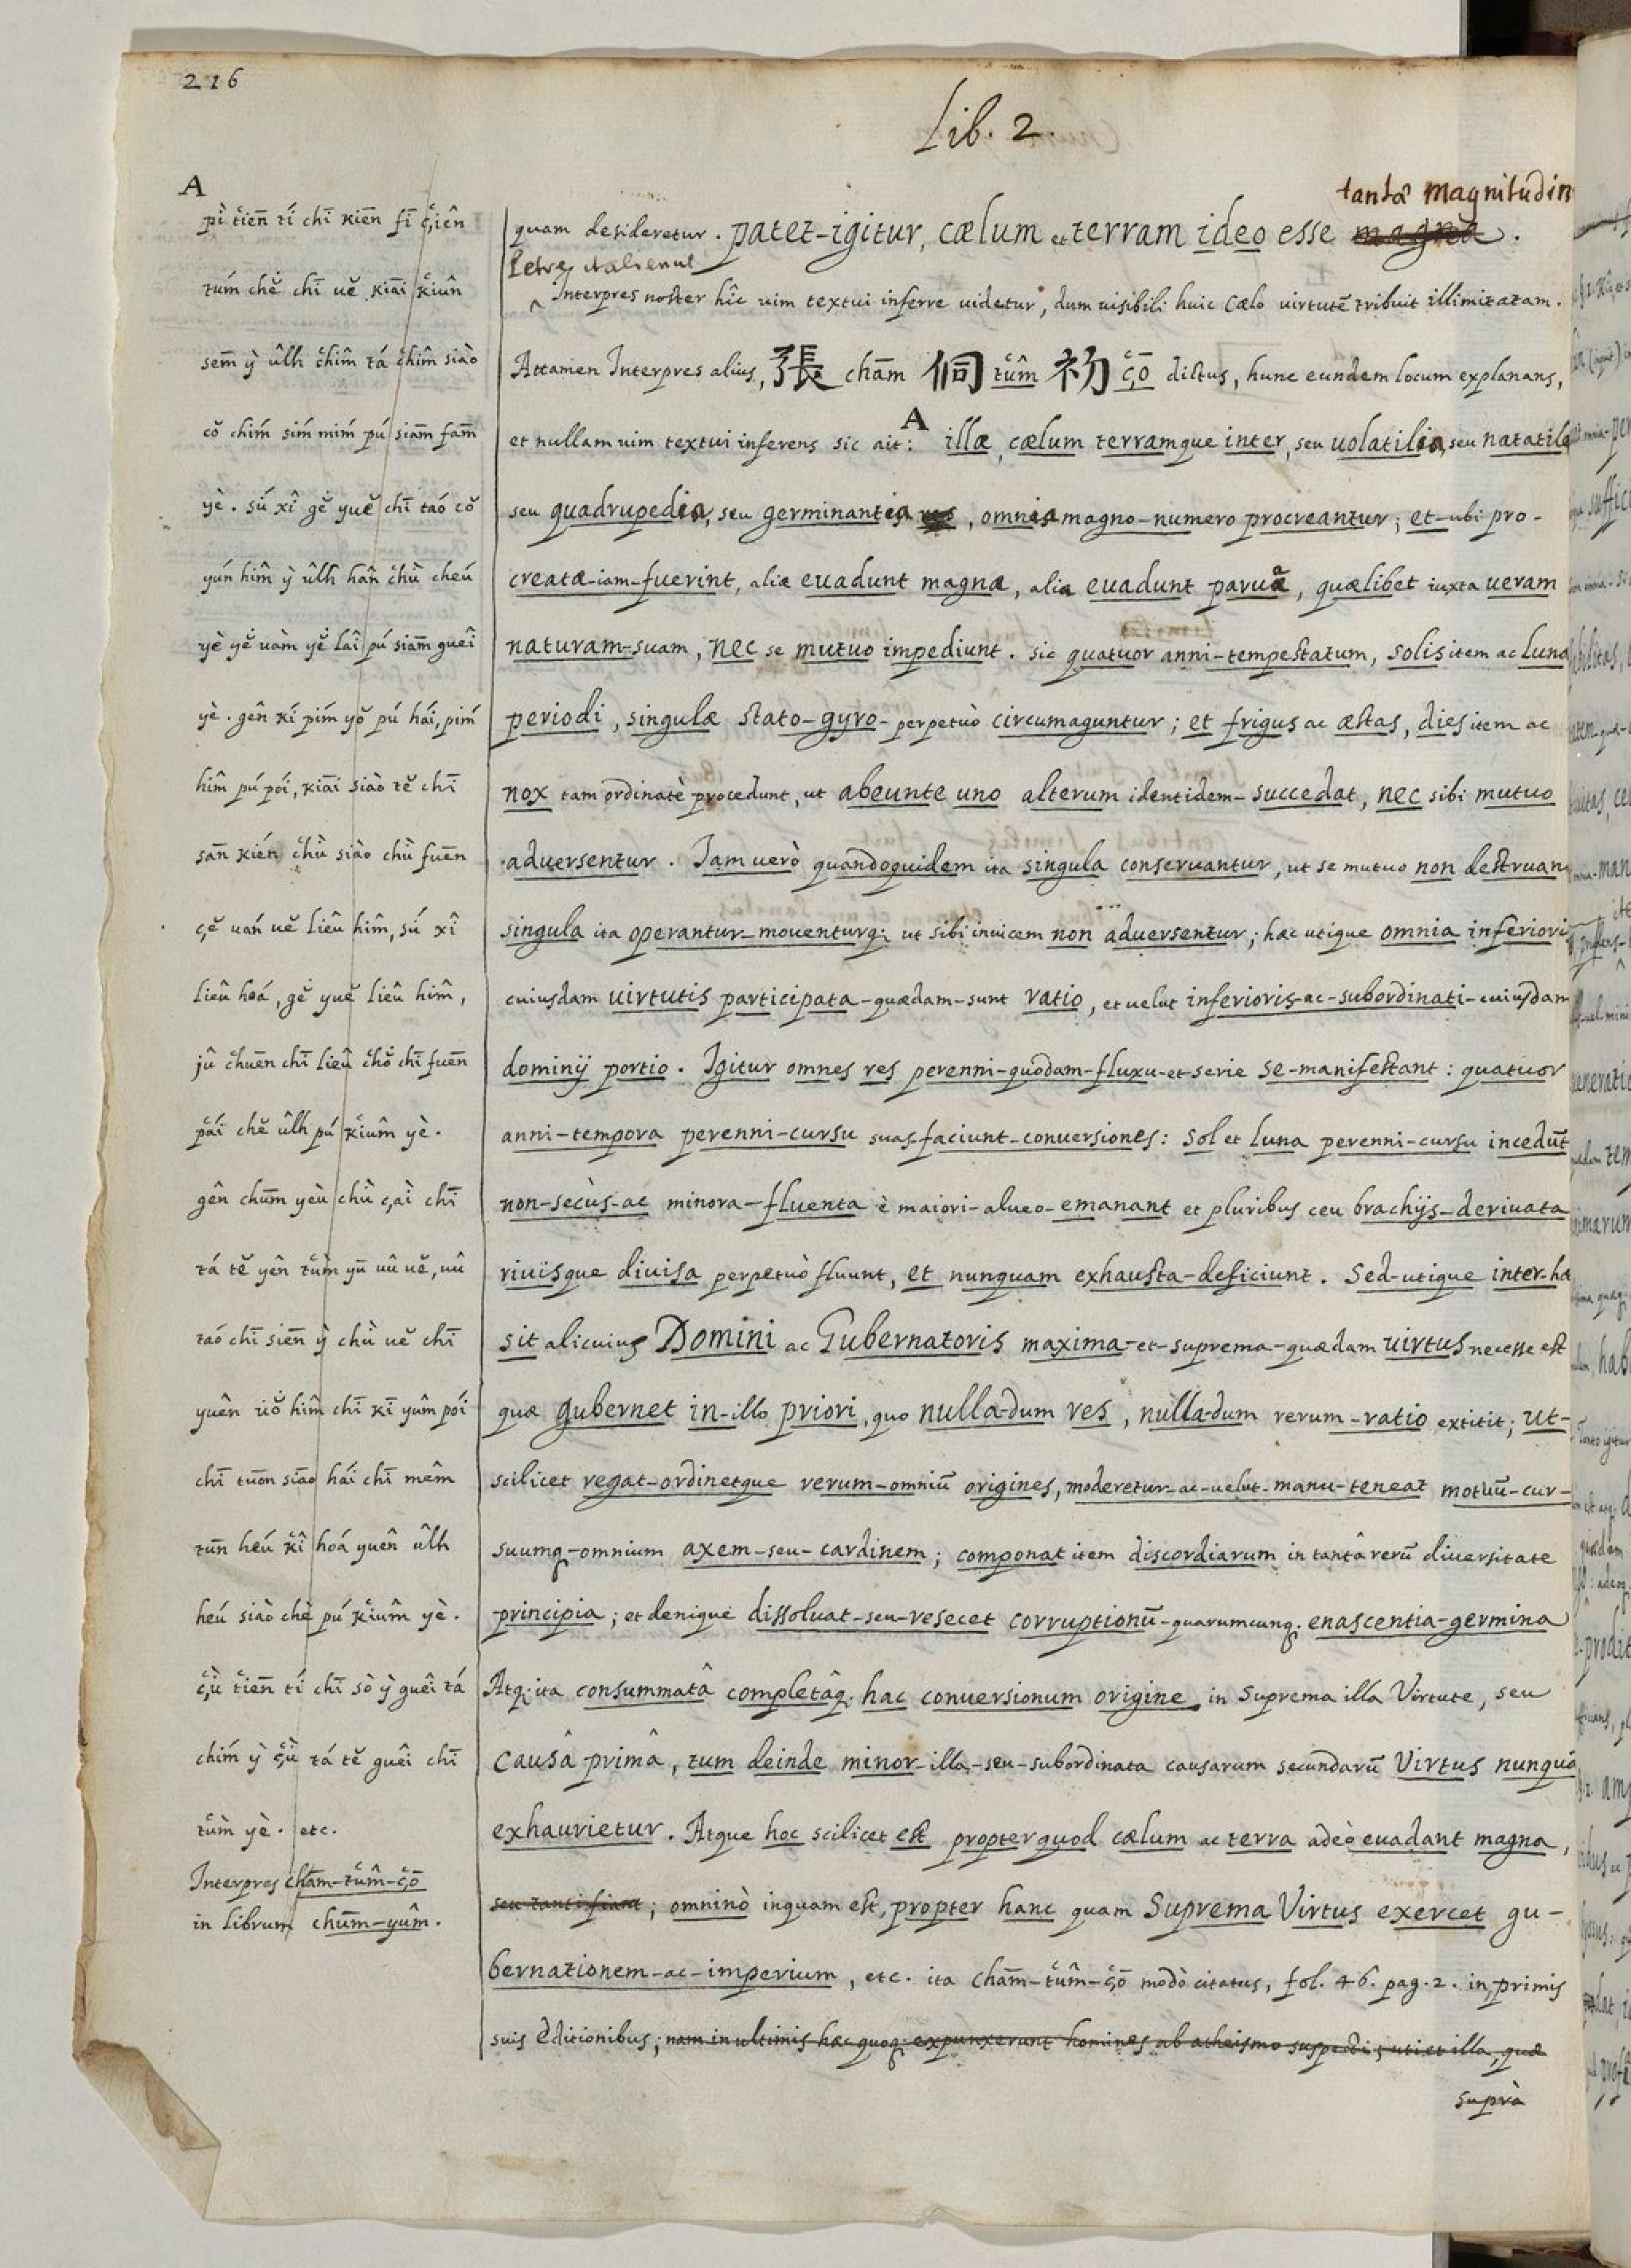 216
Lib. 2.
A
pì t̔iēn tí chī kiēn fī ç̔iên
túm chĕ chī uĕ kiāi k̔iûn
sem̄ ỳ ûlh c̔hîm tá c̔hîm siào
cŏ chím sím mím pú siām fām
yè. sú xî gĕ yuĕ chī táo cŏ
yún hîm ỳ ûlh hân c̔hù cheú
yè yĕ uàm yĕ laî pú siām gueî
yè. gên kí pím yŏ pú hái, pím
hîm pú pói, kiāi siào tĕ chī
sān kién c̔hù siào chù fuēn
çĕ uán uĕ lieû hîm, sú xî
lieû hoá, gĕ yuĕ lieû hîm,
jû c̔huēn chī lieû c̔hŏ chī fuēn
p̔ái chĕ ûlh pú k̔iûm yè.
gên chūm yeù chù çái chī
tá tĕ yên t̔ùm yū uû uĕ, uû
táo chī siēn ỳ chù uĕ chī
yuên uŏ hîm chī kī yûm pói
chī tuōn siāo hái chī mêm
tūn heú k̔î hoá yuên ûlh
heú siào chè pú k̔iûm yè.
ç̔ù t̔iēn tí chī sò ỳ gueî tá
chím ỳ ç̔ù tá tĕ gueî chī
t̔ùm yè. etc.
Interpres chām-t̔ûm-ç̔ō
in librum chūm-yûm.
tantæ magnitudin
quam desideretur. patet-igitur, cælum et terram ideo esse magna.
Interpres noster hîc uim textui inferre uidetur, dum uisibili huic Cælo uirtutē tribuit illimitatam.
Attamen Interpres alius, 張 chām 侗 t̔ûm 初 ç̔ō dictus, hunc eundem locum explanans,
A
et nullam uim textui inferens sic ait: illæ, cælum terramque inter, seu uolatilia, seu natatile
seu quadrupedia, seu germinantia res, omnia magno-numero procreantur; et-ubi pro-
creatæ-iam-fuerint, aliæ euadunt magnæ, alia euadunt parua, quælibet iuxta ueram
naturam-suam, nec se mutuo impediunt. sic quatuor anni-tempestatum, solis item ac luna
periodi, singulæ stato-gyro-perpetuò circumaguntur; et frigus ac æstas, dies item ac
nox tam ordinatè procedunt, ut abeunte uno alterum identidem-succedat, nec sibi mutuo
aduersentur. Iam uerò quandoquidem ita singula conseruantur, ut se mutuo non destruan
singula ita operantur-mouenturq; ut sibi inuicem non aduersentur; hæc utique omnia inferiori
cuiusdam uirtutis participata-quædam-sunt ratio, et uelut inferioris-ac-subordinati-cuiusdam
dominij portio. Igitur omnes res perenni-quodam-fluxu-et-serie se-manifestant: quatuor
anni-tempora perenni-cursu suas faciunt-conuersiones: Sol et Luna perenni-cursu incedūt
non-secùs-ac minora-fluenta è maiori-alueo-emanant et pluribus ceu brachijs-deriuata
riuisque diuisa perpetuò fluunt, et nunquam exhausta-deficiunt. Sed-utique inter-hæ
sit alicuius Domini ac Gubernatoris maxima-et-suprema-quædam uirtus necesse est
quæ gubernet in-illo priori, quo nulla-dum res, nulla-dum rerum-ratio extitit; ut-
scilicet regat-ordinetque rerum-omniū origines, moderetur-ac-uelut-manu-teneat motuū-cur-
suumq-omnium axem-seu-cardinem; componat item discordiarum in tantâ rerū diuersitate
principia; et denique dissoluat-seu-resecet corruptionū-quarumcunq. enascentia-germina
Atq; ita consummatâ completâq. hac conuersionum origine in Suprema illa Virtute, seu
Causâ primâ, tum deinde minor-illa-seu-subordinata causarum secundarū Virtus nunquā
exhaurietur. Atque hoc scilicet est propter quod cælum ac terra adeò euadant magna,
seu tanti fiant; omninò inquam est, propter hanc quam Suprema Virtus exercet gu-
bernationem-ac-imperium, etc. ita chām-t̔ûm-ç̔ō modò citatus, fol. 46. pag. 2. in primis
suis editionibus; nam in ultimis hæc quoq; expunxerunt homines ab atheismo suspecti; uti et illa, quæ
suprà